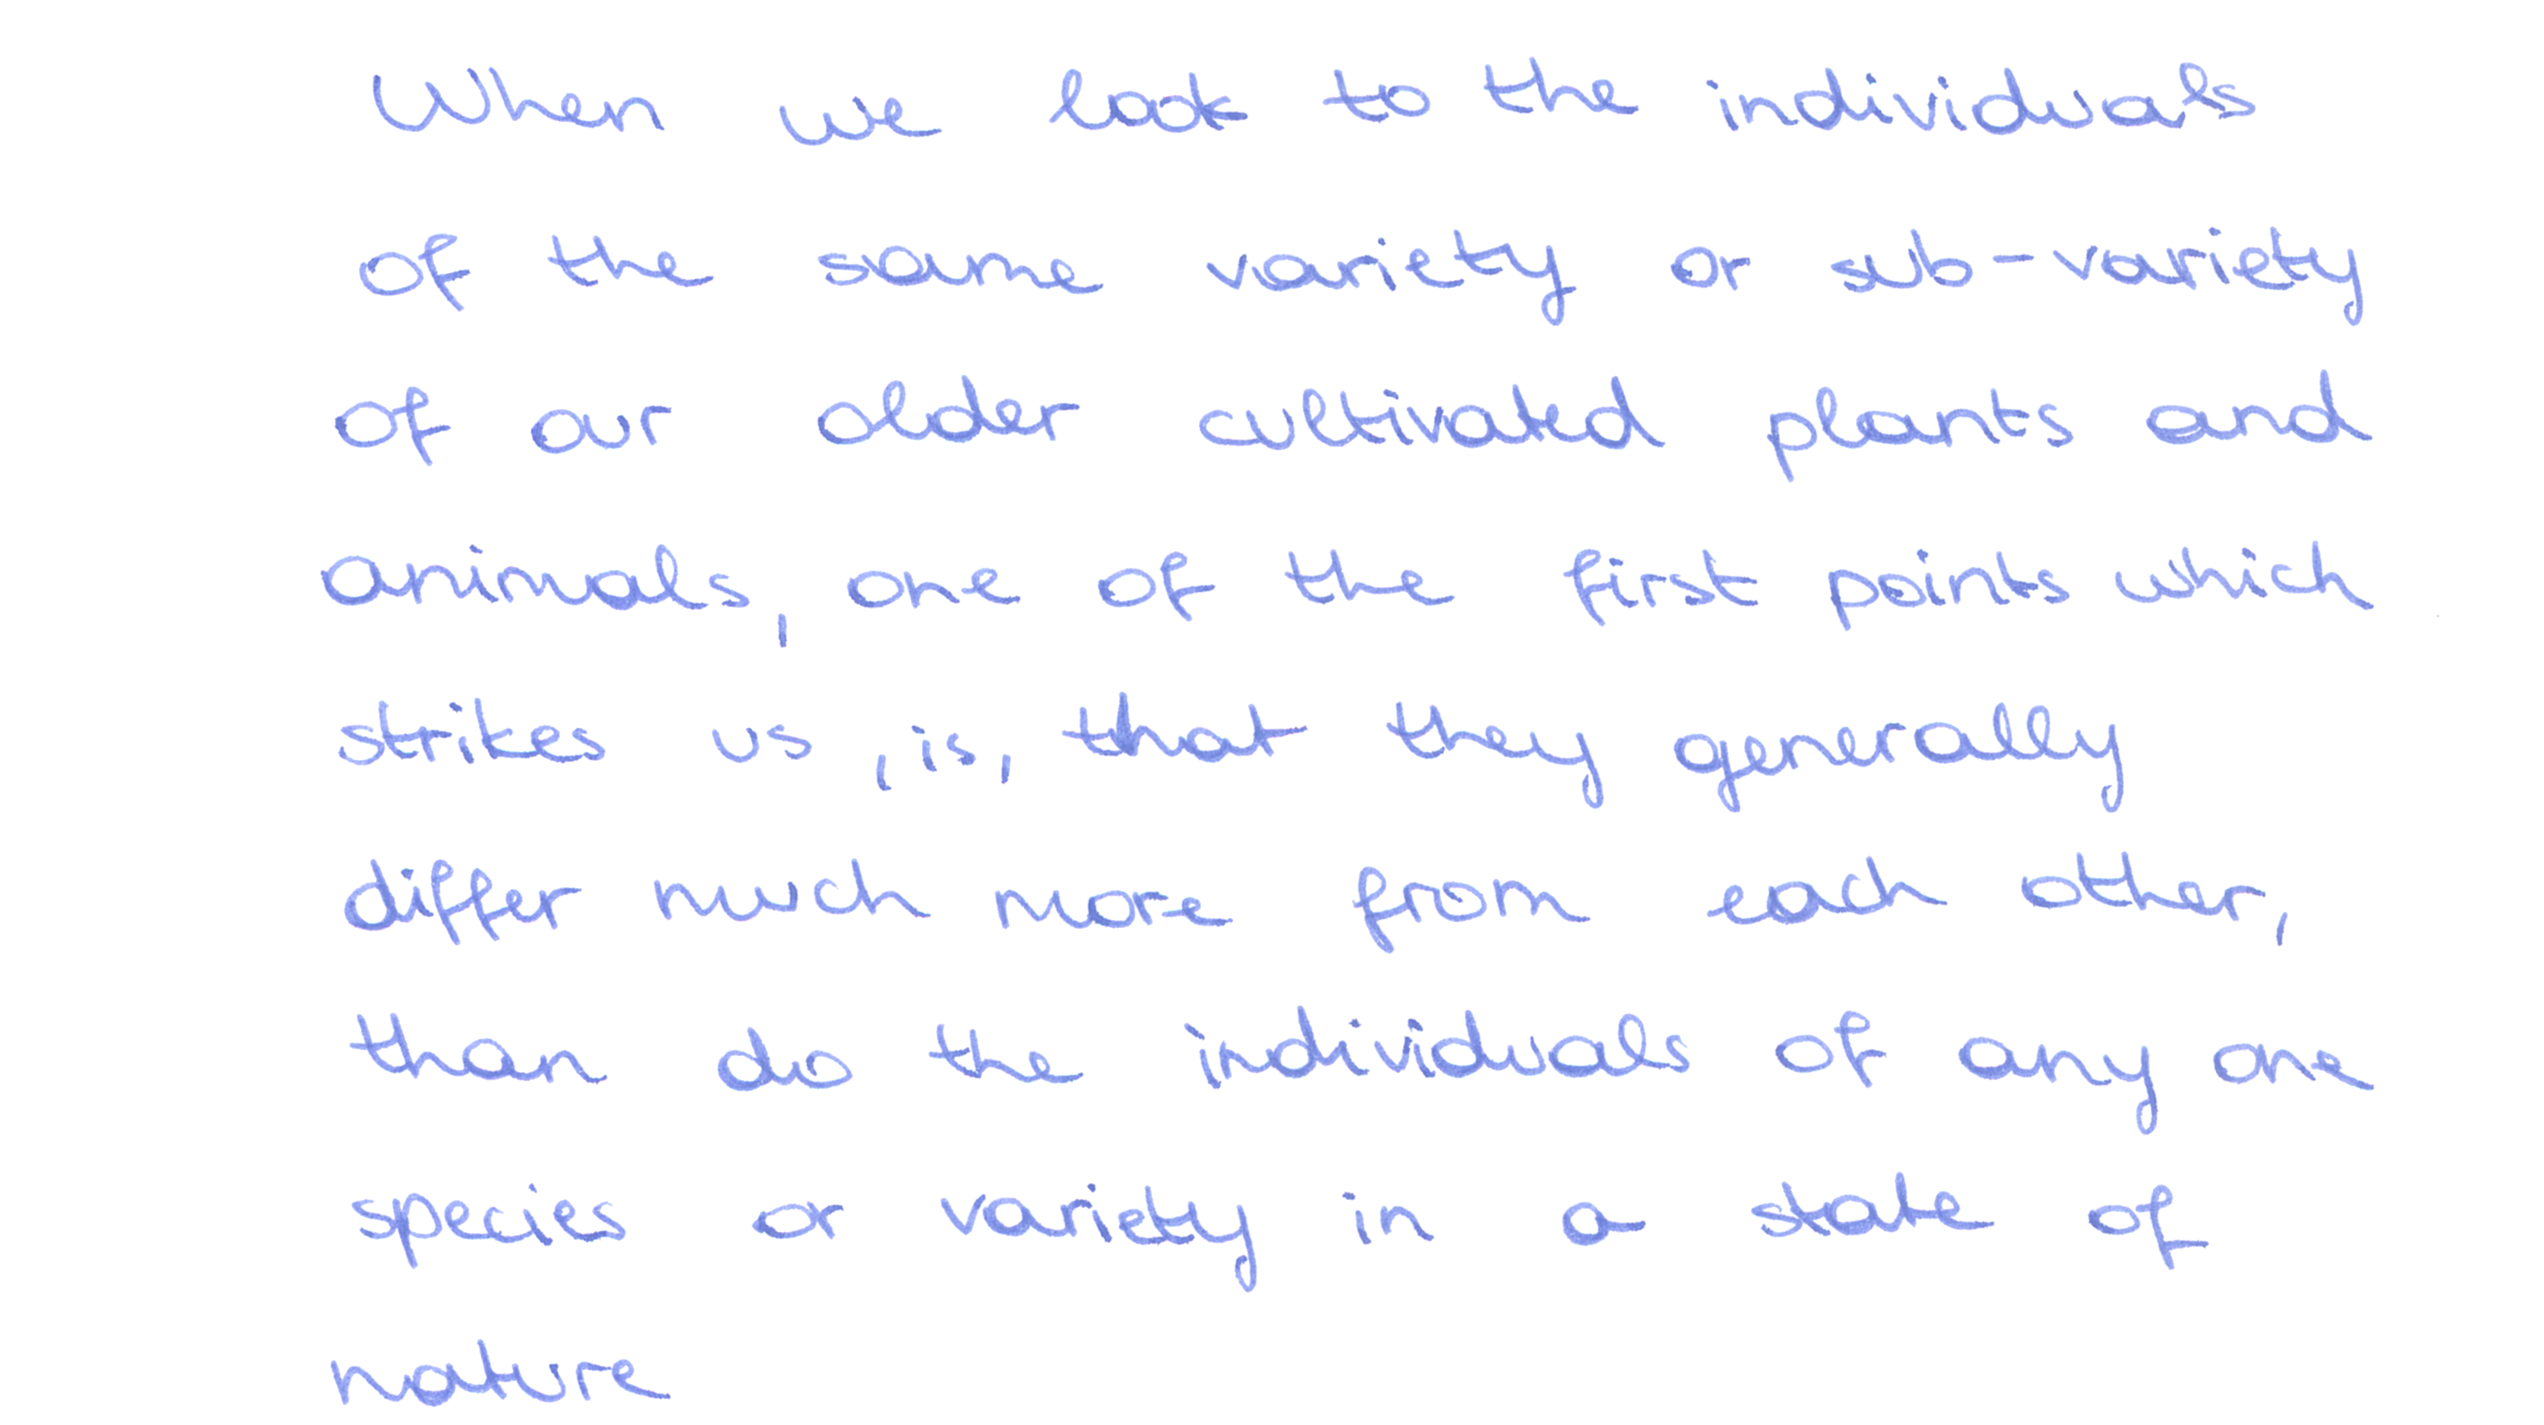 When we look to the individuals
of the same variety or sub-variety
of our older cultivated plants and
animals, one of the first points which
strikes us, is, that they generally
differ much more from each other,
than do the individuals of any one
species or variety in a state of
nature